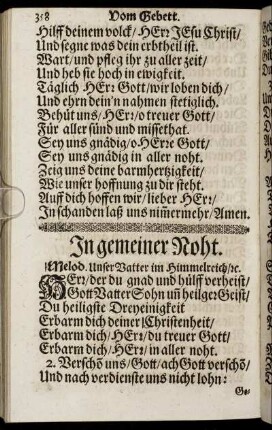 318 Vom Gebett.
Hilff deinem volck/ HErꝛ JEsu Christ/
Und segne was dein erbtheil ist.
Wart/ und pfleg ihr zu aller zeit/
Und heb sie hoch in ewigkeit.
Täglich HErꝛ Gott/ wir loben dich/
Und ehrn dein'n nahmen stetiglich.
Behüt uns/ HErꝛ/ o treuer Gott/
Für aller sünd und missethat.
Sey uns gnädig/ o HErꝛe Gott/
Sey uns gnädig in aller noht.
Zeig uns deine barmhertzigkeit/
Wie unser hoffnung zu dir steht.
Auff dich hoffen wir/ lieber HErꝛ/
In schanden laß uns nim̃ermehr/ Amen.
In gemeiner Noht.
Melod. Unser Vatter im Himmelreich/ ꝛc.
HErꝛ/ der du gnad und hülff verheist/
Gott Vatter Sohn un̄ heilger Geist/
Du heiligste Dreyeinigkeit
Erbarm dich deiner Christenheit/
Erbarm dich/ HErꝛ/ du treuer Gott/
Erbarm dich/ HErꝛ/ in aller noht.
2. Verschõ uns/ Gott/ ach Gott verschõ/
Und nach verdienste uns nicht lohn: